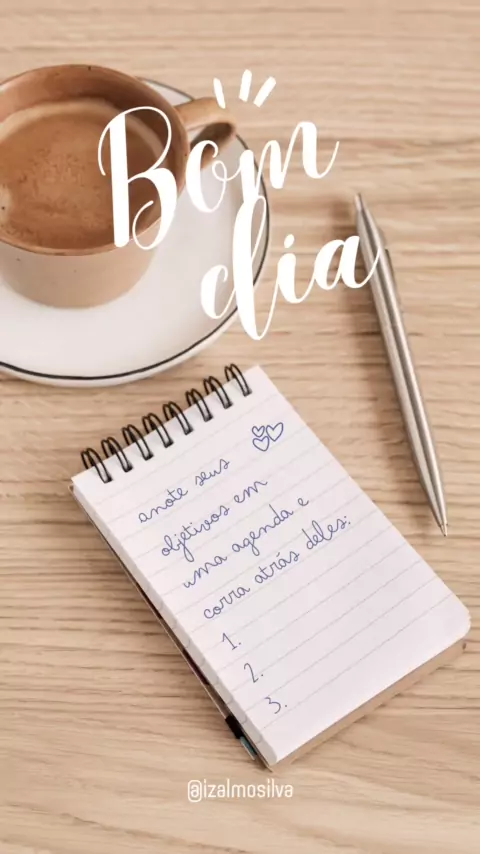 Bom
dia
anote seus
objetivos em
uma agenda e
corra atrás deles:
1.
2.
3.
@izalmosilva